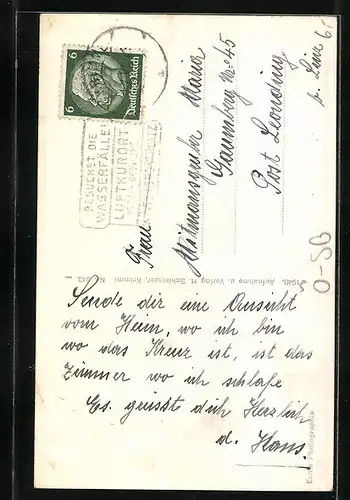 6 6
Deutsches Reich
BESUCHET DIE
WASSERFÄLLE
LUFTKURORT
Frau
Maria
Gaumberg No 45
Post Leonding
b. Linz
1940. Aufnahme u. Verlag H. Schleinzer, Krimml. Nr.
O-SB
Sende dir eine Ansicht
vom Heim, wo ich bin
wo das Kreuz ist, ist das
Zimmer wo ich schlafe
Es grüsst dich Herzlich
d. Hans.
Echte Photographie